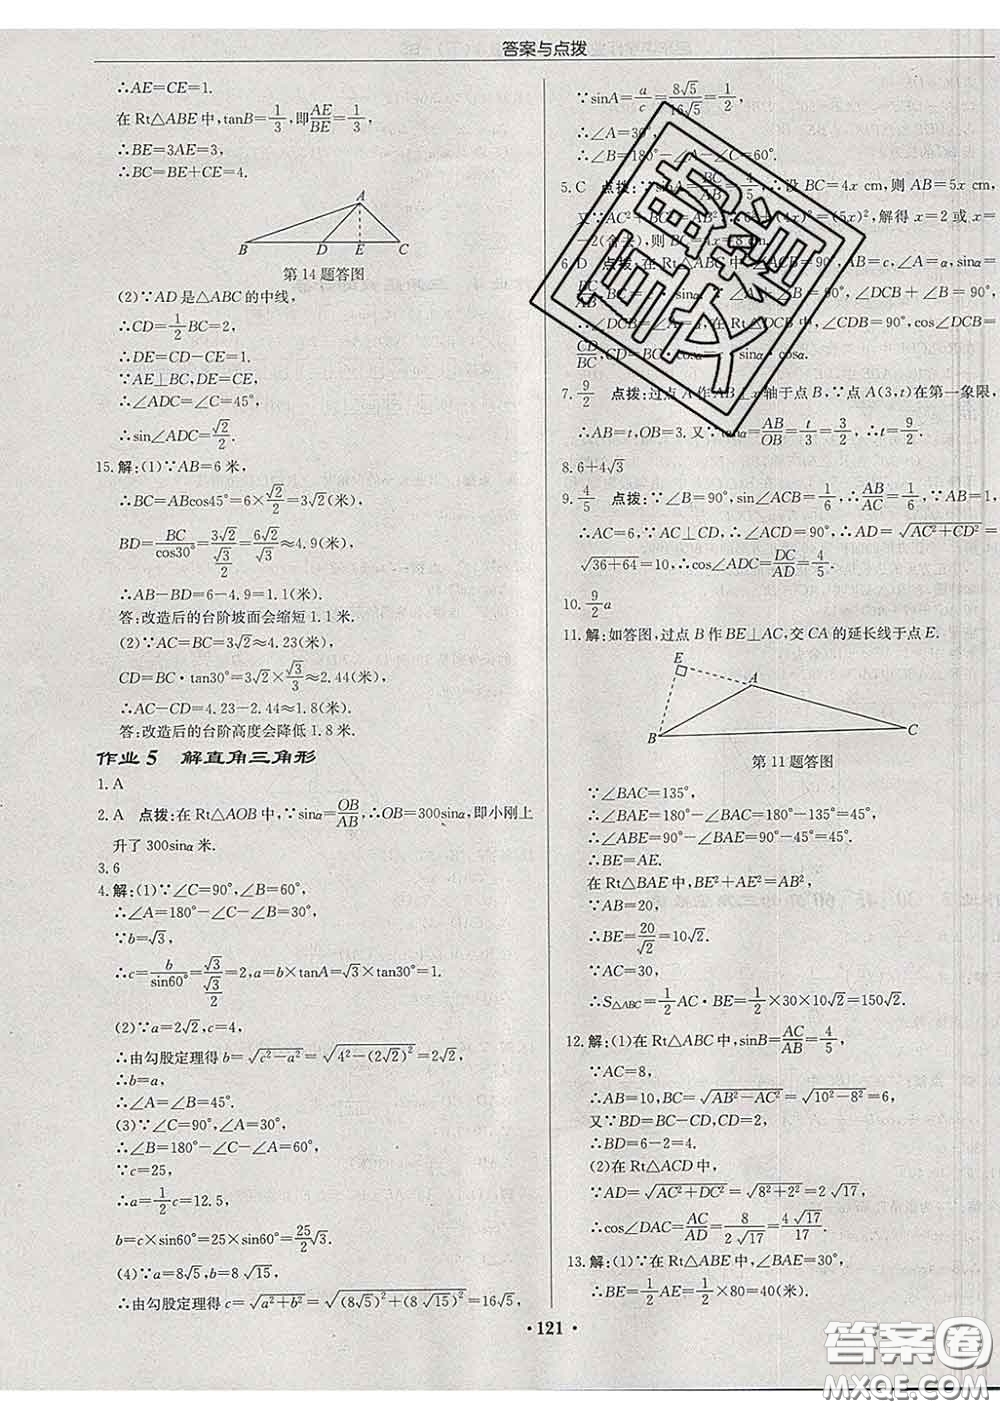 答案与点拨
∴AE=CE=1.
在 Rt△ABE 中,tanB=1/3,即AE/BE=1/3,
∴BE=3AE=3,
∴BC=BE+CE=4.
A
B D E C
第14题答图
(2)∵AD 是△ABC 的中线,
∴CD=1/2BC=2,
∴DE=CD-CE=1.
∵AE⊥BC,DE=CE,
∴∠ADC=∠C=45°,
∴sin∠ADC=√2/2.
15.解:(1)∵AB=6 米,
∴BC=ABcos45°=6×√2/2=3√2(米),
BD=BC/cos30°=3√2/(√3/2)=6√2/√3≈4.9(米),
∴AB-BD=6-4.9=1.1(米).
答:改造后的台阶坡面会缩短 1.1 米.
(2)∵AC=BC=3√2≈4.23(米),
CD=BC·tan30°=3√2×√3/3≈2.44(米),
∴AC-CD=4.23-2.44≈1.8(米).
答:改造后的台阶高度会降低 1.8 米.
作业 5 解直角三角形
1.A
2.A 点拨:在 Rt△AOB 中,∵sinα=OB/AB,∴OB=300sinα,即小刚上
升了 300sinα 米.
3.6
4.解:(1)∵∠C=90°,∠B=60°,
∴∠A=180°-∠C-∠B=30°.
∵b=√3,
∴c=b/sin60°=√3/(√3/2)=2,a=b×tanA=√3×tan30°=1.
(2)∵a=2√2,c=4,
∴由勾股定理得 b=√(c²-a²)=√(4²-(2√2)²)=2√2,
∴b=a,
∴∠A=∠B=45°.
(3)∵∠C=90°,∠A=30°,
∴∠B=180°-∠C-∠A=60°.
∵c=25,
∴a=1/2c=12.5,
b=c×sin60°=25×sin60°=25/2√3.
(4)∵a=8√5,b=8√15,
∴由勾股定理得 c=√(a²+b²)=√((8√5)²+(8√15)²)=16√5,
∵sinA=a/c=8√5/16√5=1/2,
∴∠A=30°,
∴∠B=180°-∠A-∠C=60°.
5.C 点拨:∵sinA=BC/AB=4/5,∴设 BC=4x cm,则 AB=5x cm,
又∵AC²+BC²=AB²,∴6²+(4x)²=(5x)²,解得 x=2 或 x=
-2(舍去),则 BC=4x=8 cm.
6.D 点拨:在 Rt△ABC 中,∠ACB=90°,AB=c,∠A=α,sinα=
∠DCB+∠B=90°,
∴∠DCB=∠A=α,在 Rt△DCB 中,∠CDB=90°,cos∠DCB=
CD/BC,
7.9/2 点拨:过点 A 作 AB⊥x 轴于点 B,∵点 A(3,t)在第一象限,
∴AB=t,OB=3.又∵tanα=AB/OB=t/3=3/2,∴t=9/2.
8.6+4√3
9.4/5 点拨:∵∠B=90°,sin∠ACB=1/6,∴AB/AC=1/6,∵AB=1,
∴AC=6,∵AC⊥CD,∴∠ACD=90°,∴AD=√(AC²+CD²)=
√(36+64)=10,∴cos∠ADC=DC/AD=4/5.
10.9/2a
11.解:如答图,过点 B 作 BE⊥AC,交 CA 的延长线于点 E.
E
A
B C
第11题答图
∵∠BAC=135°,
∴∠BAE=180°-∠BAC=180°-135°=45°,
∴∠ABE=90°-∠BAE=90°-45°=45°,
∴BE=AE.
在 Rt△BAE 中,BE²+AE²=AB²,
∵AB=20,
∴BE=20/√2=10√2.
∵AC=30,
∴S△ABC=1/2AC·BE=1/2×30×10√2=150√2.
12.解:(1)在 Rt△ABC 中,sinB=AC/AB=4/5,
∵AC=8,
∴AB=10,BC=√(AB²-AC²)=√(10²-8²)=6,
又∵BD=BC-CD,CD=2,
∴BD=6-2=4.
(2)在 Rt△ACD 中,
∵AD=√(AC²+DC²)=√(8²+2²)=2√17,
∴cos∠DAC=AC/AD=8/2√17=4√17/17.
13.解:(1)∵在 Rt△ABE 中,∠BAE=30°,
∴BE=1/2AE=1/2×80=40(米).
·121·
答案圈
MXQE.COM